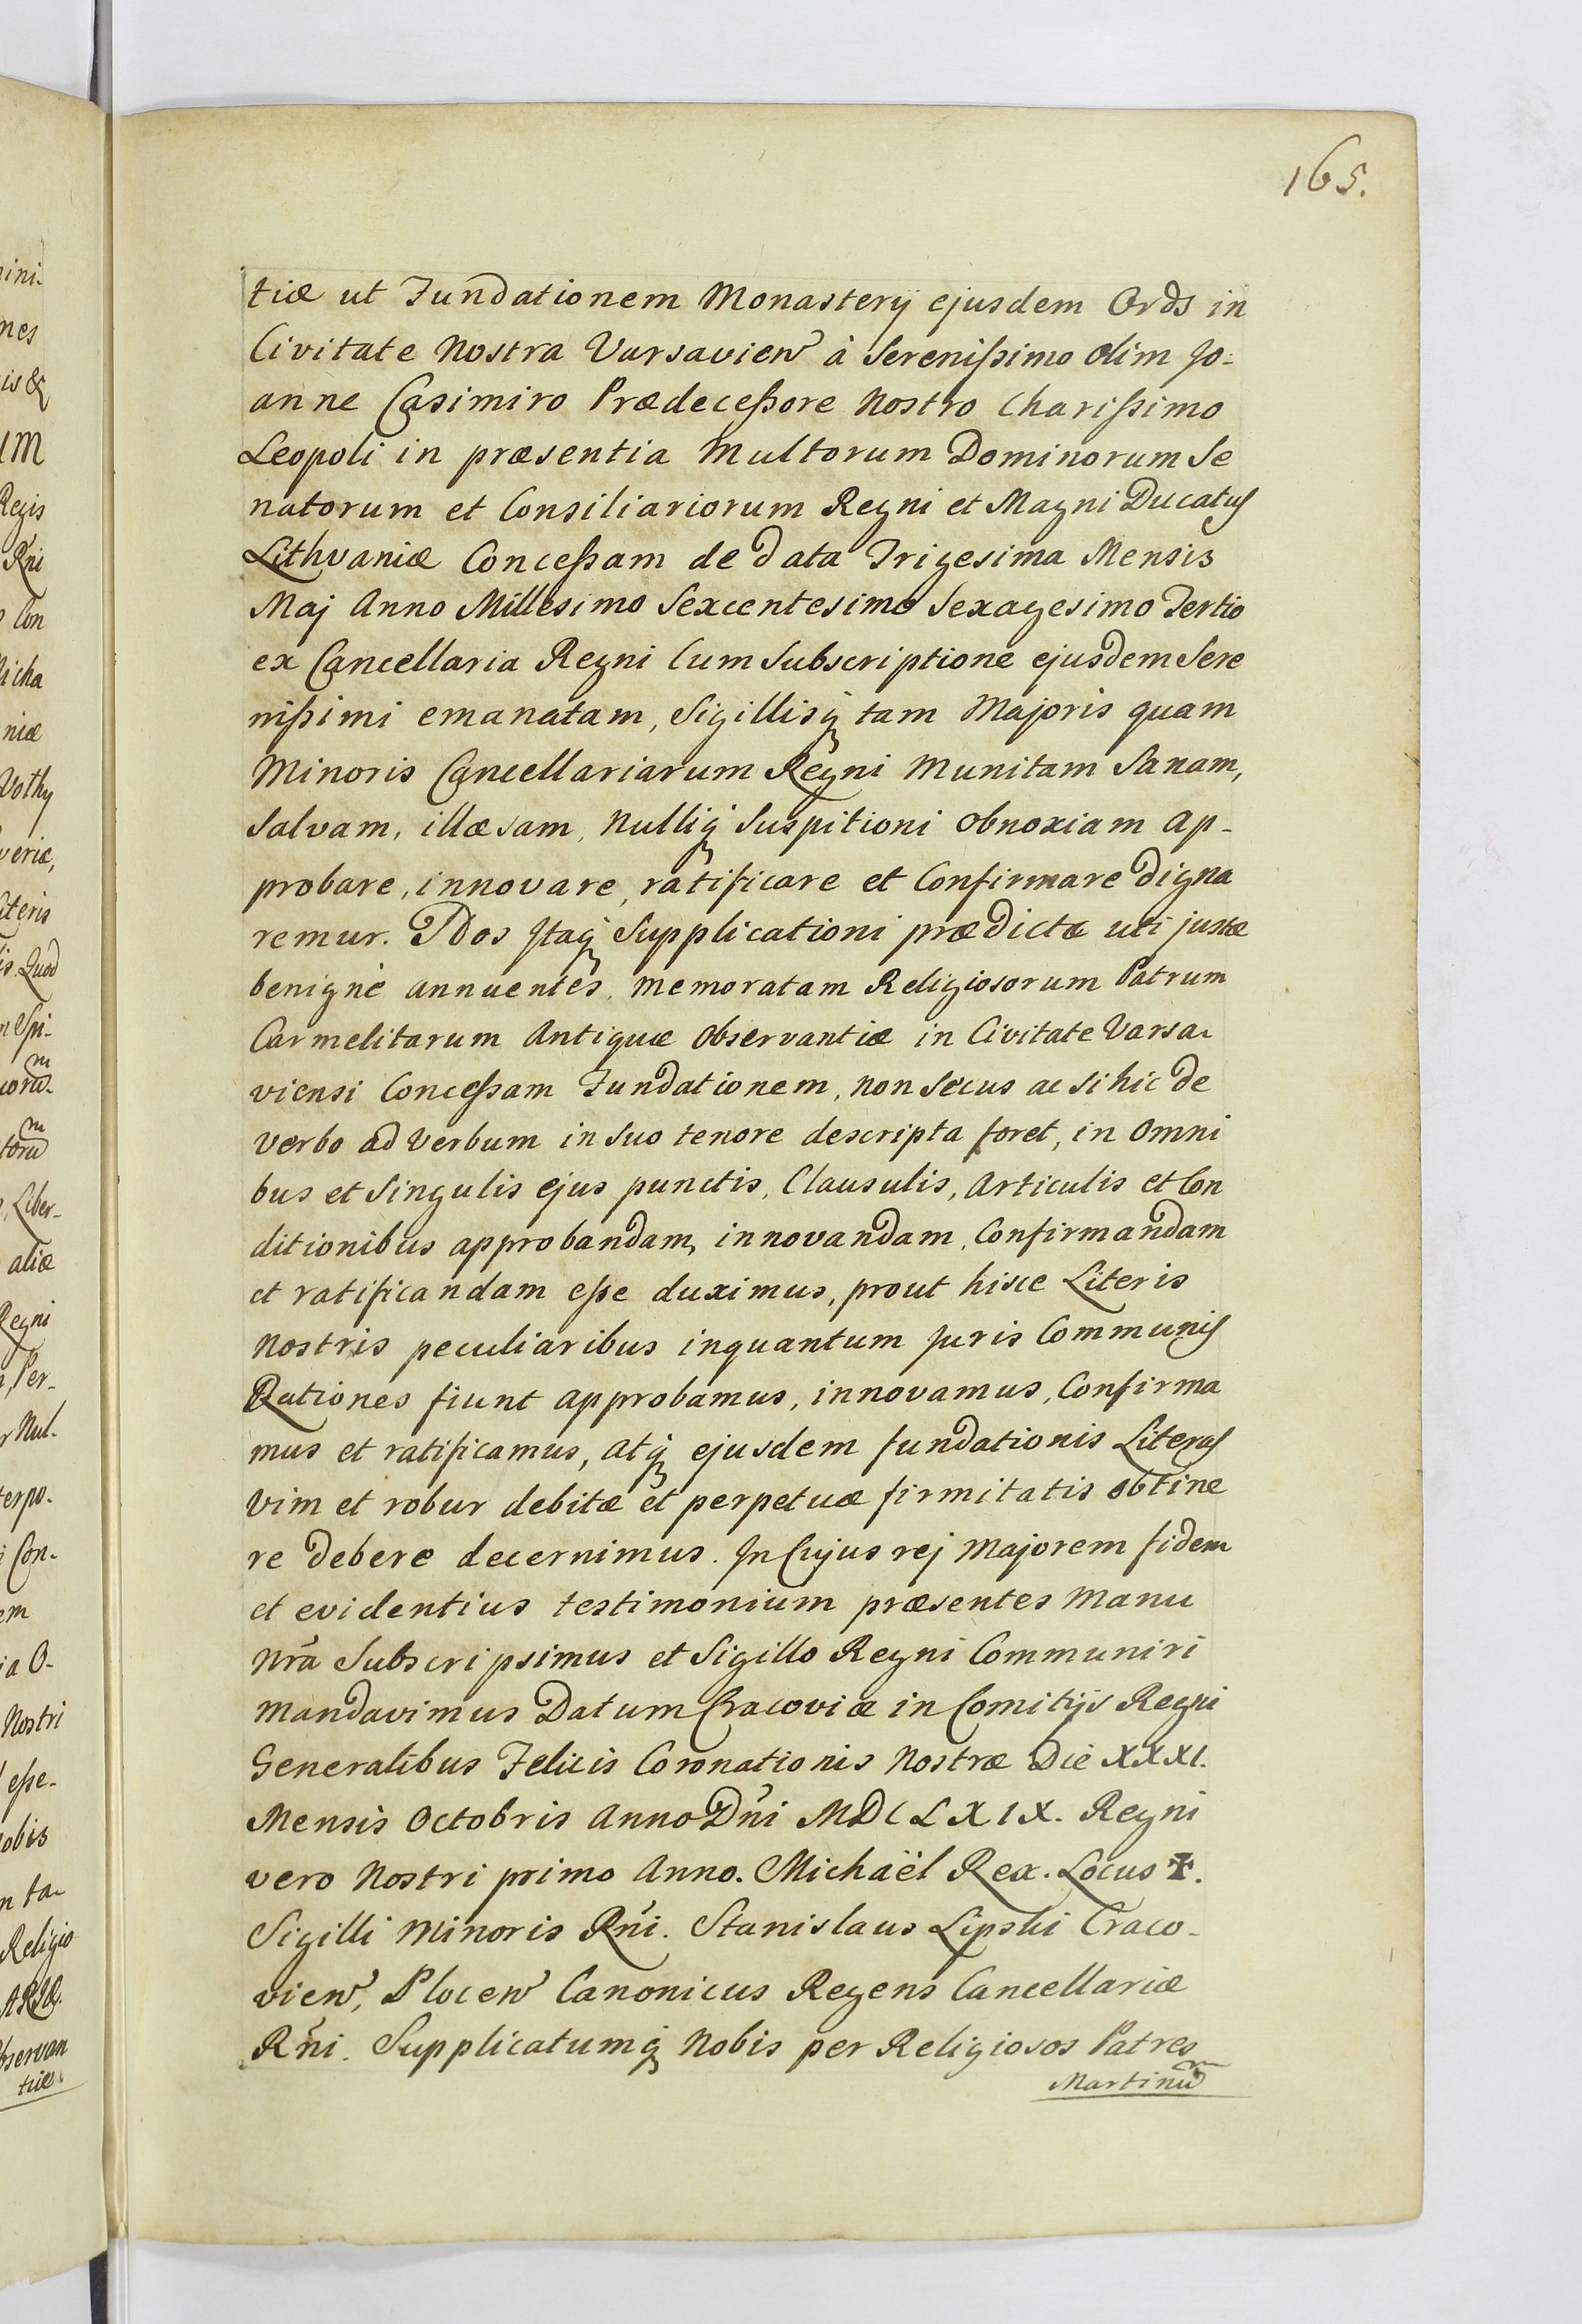 165.
tiæ ut Fundationem Monasterÿ ejusdem Ords in
Civitate Nostra Varsavien̄ à Serenißimo olim Jo-
anne Casimiro Prædeceßore Nostro Charißimo
Leopoli in præsentia Multorum Dominorum Se
natorum et Consiliariorum Regni et Magni Ducatus
Lithvaniæ Conceßam de data Trigesima Mensis
Maj Anno Millesimo Sexcentesimo Sexagesimo Tertio
ex Cancellaria Regni Cum Subscriptione ejusdem Sere
nißimi emanatam, Sigillisq́ tam Majoris quam
Minoris Cancellariarum Regni Munitam Sanam,
Salvam, illæsam, Nulliq́ Suspitioni obnoxiam ap-
probare, innovare, ratificare et Confirmare digna
remur. Nos Itaq́ Supplicationi prædictæ uti justæ
benignè annuentes, memoratam Religiosorum Patrum
Carmelitarum Antiquæ Observantiæ in Civitate Varsa-
viensi Conceßam Fundationem, non secus ac si hic de
verbo ad verbum in suo tenore descripta foret, in Omni
bus et Singulis ejus punctis, Clausulis, Articulis et Con
ditionibus approbandam, innovandam, Confirmandam
et ratificandam eße duximus, prout hisce Literis
Nostris peculiaribus inquantum Juris Communis
Rationes fiunt approbamus, innovamus, Confirma
mus et ratificamus, atq́ ejusdem fundationis Literas
vim et robur debitæ et perpetuæ firmitatis obtine
re debere decernimus. In Cujus rej Majorem fidem
et evidentius testimonium præsentes Manu
Nr̃a Subscripsimus et Sigillo Regni Communiri
Mandavimus Datum Cracoviæ in Comitijs Regni
Generalibus Felicis Coronationis Nostræ Die XXXI.
Mensis Octobris Anno Dñi MDCLXIX. Regni
vero Nostri primo Anno. Michaël Rex. Locus ✠.
Sigilli Minoris Rñi. Stanislaus Lipski Craco-
vien̄, Plocen̄ Canonicus Regens Cancellariæ
Rñi. Supplicatumq́ Nobis per Religiosos Patres
Martinũm